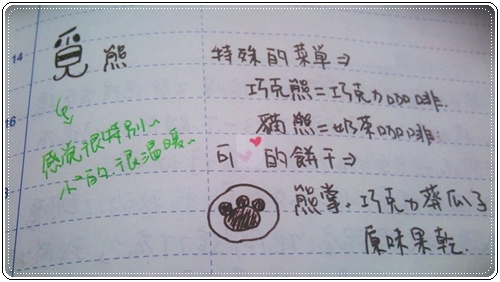 14
覓熊
特殊的菜单⇒
巧克熊=巧克力咖啡.
16
貓熊=奶茶咖啡
感覚很特別、
小的.很溫暖、
可♥的餅干⇒
熊掌、巧克力葵瓜子
原味果乾.